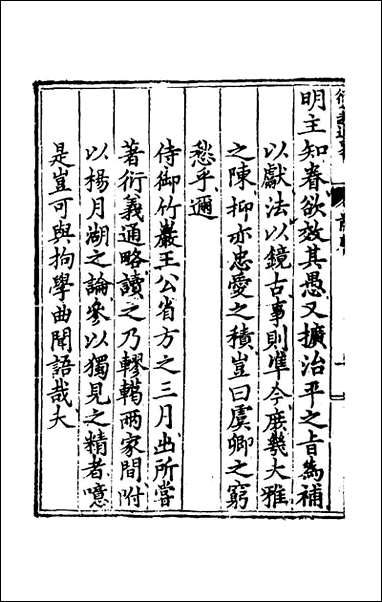 明主知眷欲效其愚又擴治平之旨為補
以獻法以鏡古事則準今庻幾大雅
之陳抑亦忠愛之積豈曰虞卿之窮
愁乎邇
侍御竹巖王公省方之三月出所嘗
著衍義通略讀之乃轇轕兩家間附
以楊月湖之論參以獨見之精者噫
是豈可與拘學曲聞語哉大